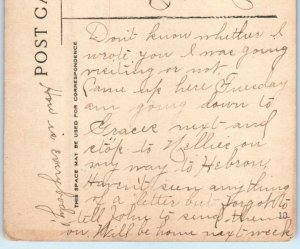 POST CA
THIS SPACE MAY BE USED FOR CORRESPONDENCE
How is everybody?
Don't know whether I
wrote you I was going
visiting or not.
Came up here Tuesday
am going down to
Gracie next and
stop to Nellies on
my way to Hebron
Haven't seen anything
of a letter but forgot to
tell John to send them
on. Will be home next week
10